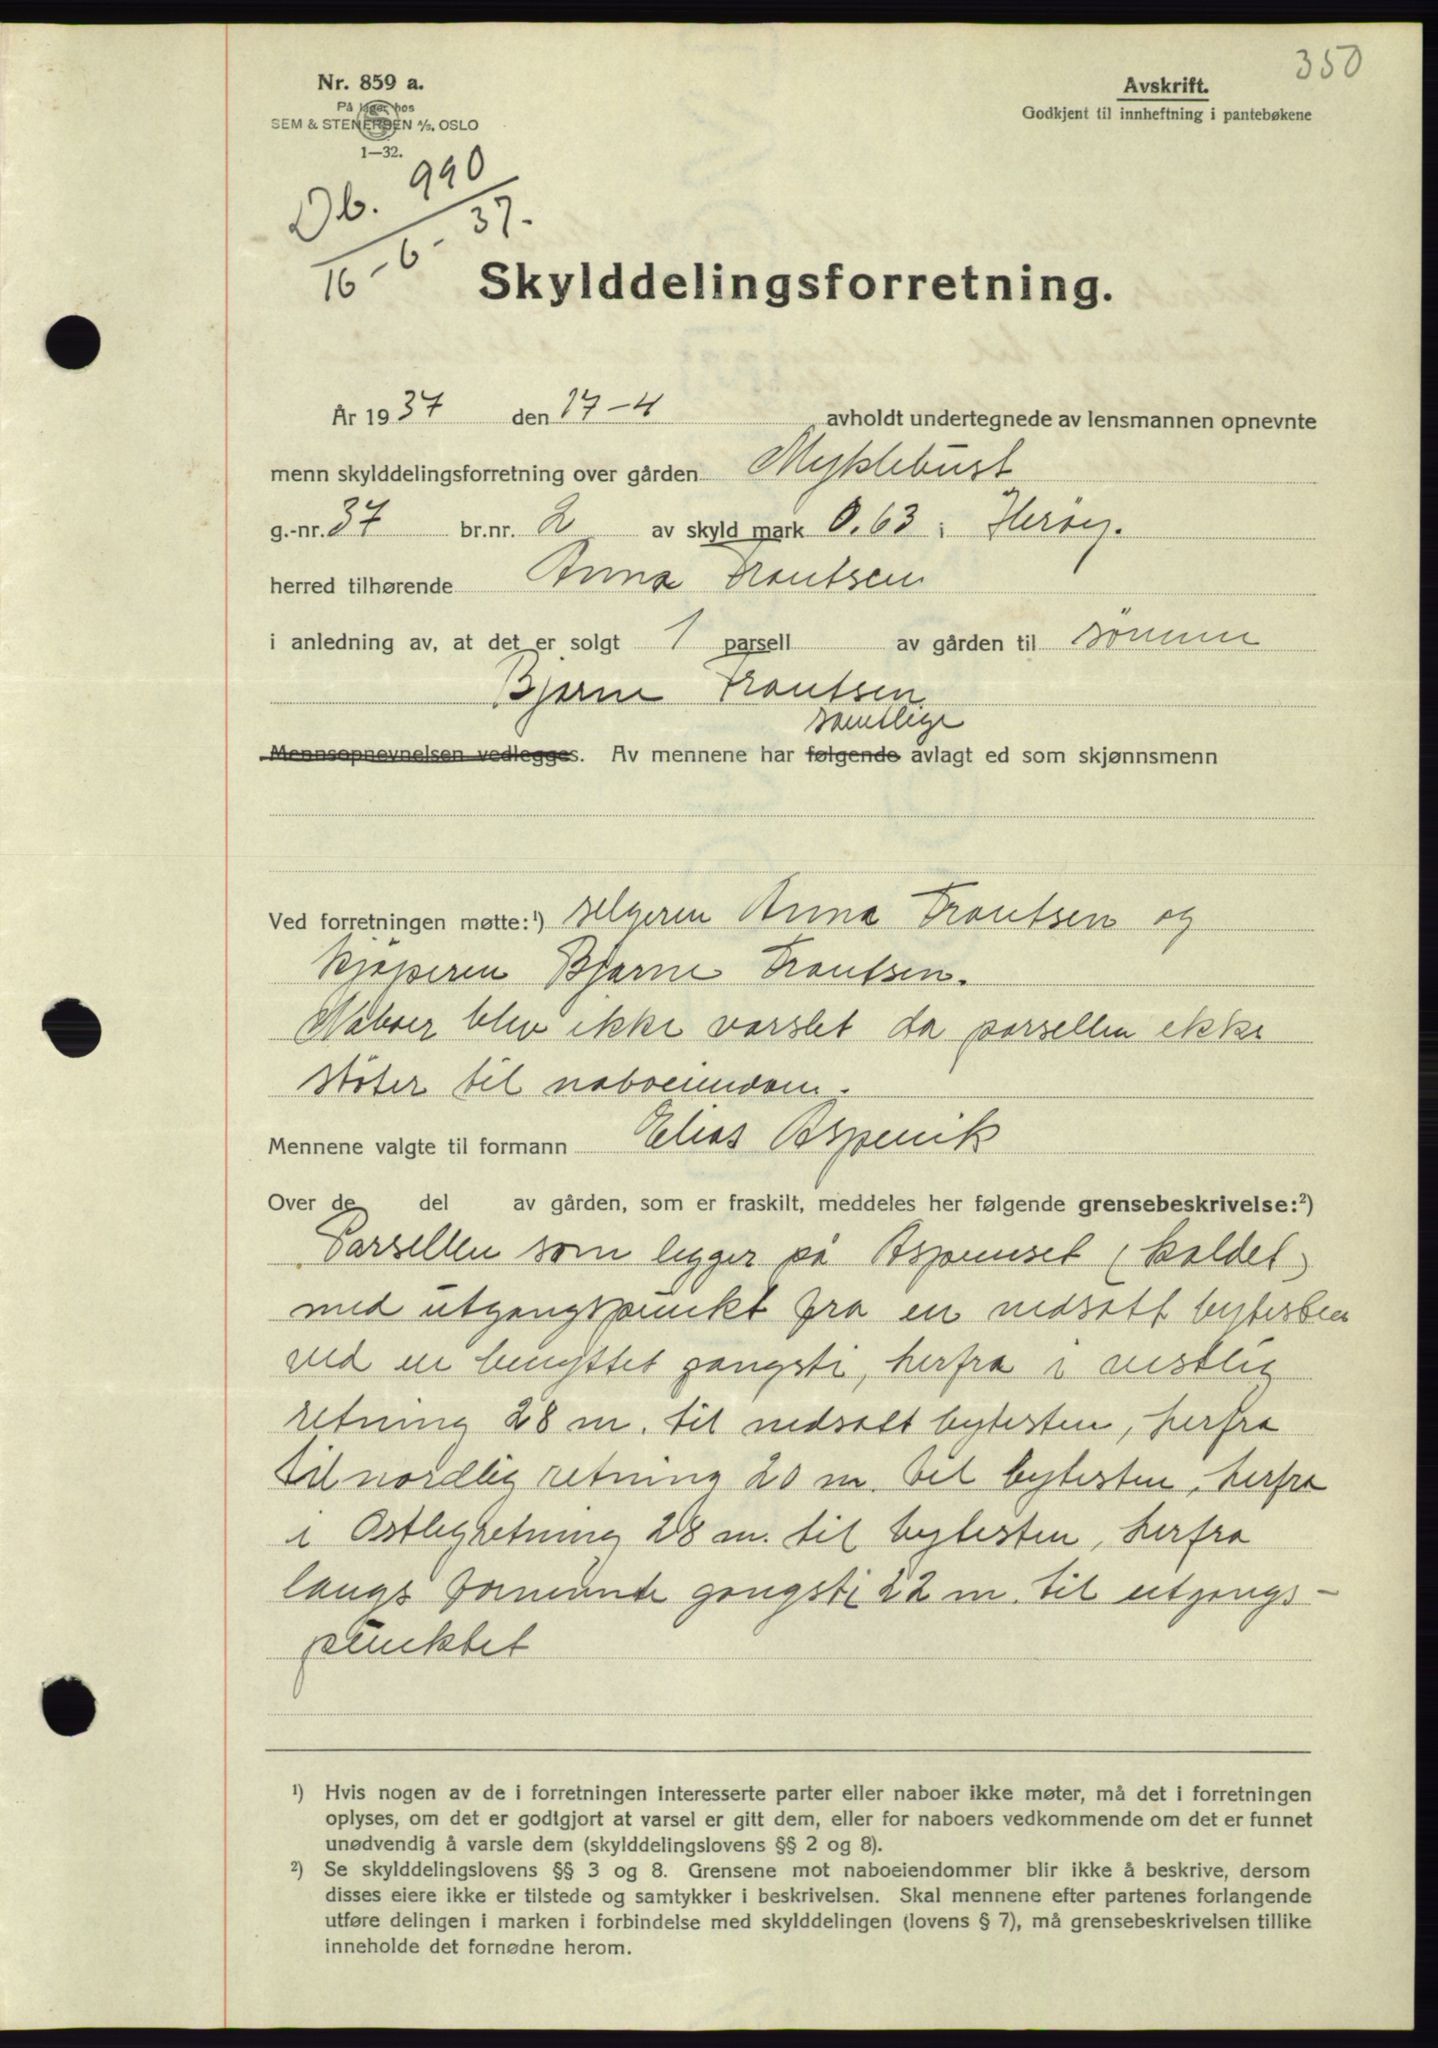 350
Nr. 859 a.
På lager hos
SEM & STENERSEN A/S, OSLO
1—32.
Avskrift.
Godkjent til innheftning i pantebøkene
Db. 990
16-6-37.
Skylddelingsforretning.
År 1937 den 17-4 avholdt undertegnede av lensmannen opnevnte
menn skylddelingsforretning over gården Myklebust
g.-nr. 37 br.nr. 2 av skyld mark 0.63 i Herøy.
herred tilhørende Anna Frantsen
i anledning av, at det er solgt 1 parsell av gården til sønnen
Bjarne Frantsen
samtlige
Mennsopnevnelsen vedlegges. Av mennene har følgende avlagt ed som skjønnsmenn
Ved forretningen møtte:¹) selgeren Anna Frantsen og
kjøperen Bjarne Frantsen.
Naboer blev ikke varslet da parsellen ikke
støter til naboeiendom.
Mennene valgte til formann Elias Aspevik
Over de del av gården, som er fraskilt, meddeles her følgende grensebeskrivelse:²)
Parsellen som ligger på (kaldet)
med utgangspunkt fra en nedsatt bytesten
ved en benyttet gangsti, herfra i vestlig
retning 28 m. til nedsatt bytesten, herfra
til nordlig retning 20 m. til bytesten, herfra
i Østlig retning 28 m. til bytesten, herfra
langs førnevnte gangsti 22 m. til utgangs-
punktet
¹) Hvis nogen av de i forretningen interesserte parter eller naboer ikke møter, må det i forretningen
oplyses, om det er godtgjort at varsel er gitt dem, eller for naboers vedkommende om det er funnet
unødvendig å varsle dem (skylddelingslovens §§ 2 og 8).
²) Se skylddelingslovens §§ 3 og 8. Grensene mot naboeiendommer blir ikke å beskrive, dersom
disses eiere ikke er tilstede og samtykker i beskrivelsen. Skal mennene efter partenes forlangende
utføre delingen i marken i forbindelse med skylddelingen (lovens § 7), må grensebeskrivelsen tillike
inneholde det fornødne herom.